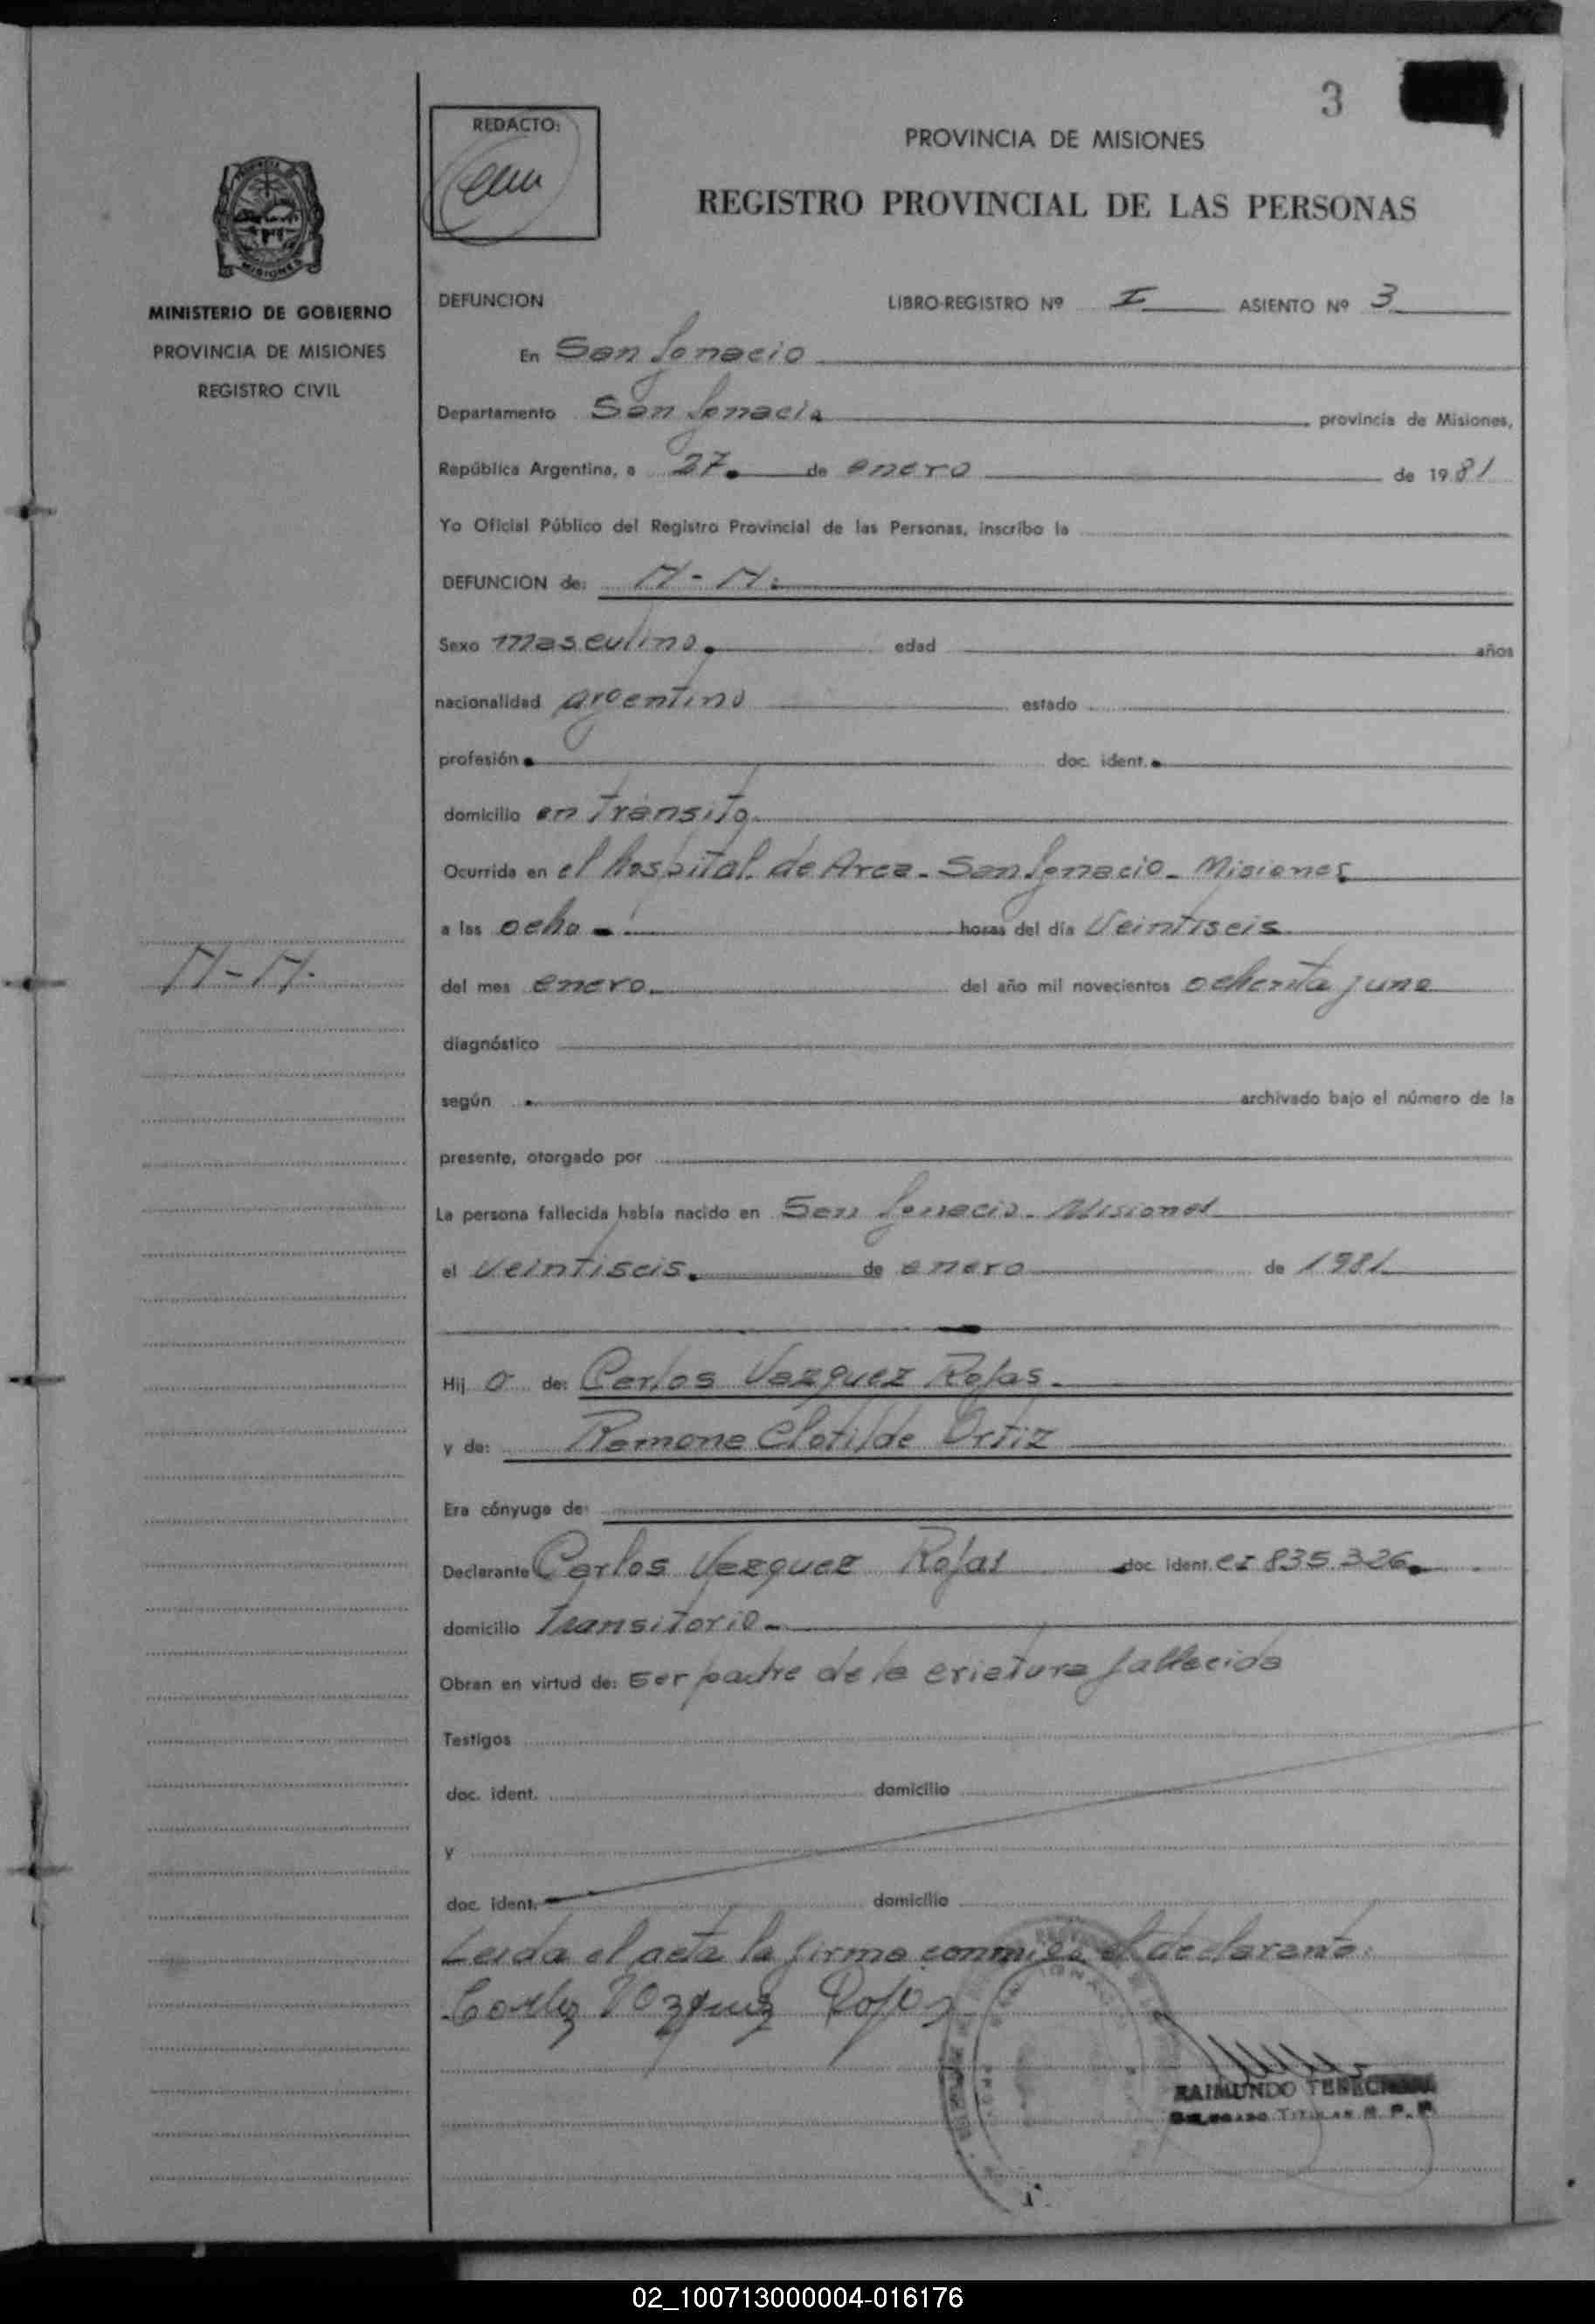 3
REDACTO:
PROVINCIA DE MISIONES
REGISTRO PROVINCIAL DE LAS PERSONAS
MISIONES
MINISTERIO DE GOBIERNO
PROVINCIA DE MISIONES
REGISTRO CIVIL
DEFUNCION LIBRO-REGISTRO Nº I ASIENTO Nº 3
En San Ignacio
Departamento San Ignacio provincia de Misiones,
República Argentina, a 27 de enero de 1981
Yo Oficial Público del Registro Provincial de las Personas, inscribo la
DEFUNCION de: N-N.
Sexo masculino. edad años
nacionalidad argentino estado
profesión doc. ident.
domicilio en tránsito
Ocurrida en el hospital de Area - San Ignacio - Misiones
a las ocho horas del día veintiseis
N-N.
del mes enero del año mil novecientos ochenta y uno
diagnóstico
según archivado bajo el número de la
presente, otorgado por
La persona fallecida había nacido en San Ignacio - Misiones
el veintiseis. de enero de 1981
Hij o de: Carlos Vazquez Rojas.
y de: Ramona Clotilde Ortiz
Era cónyuge de:
Declarante Carlos Vazquez Rojas doc. ident. CI 835.326
domicilio transitorio
Obran en virtud de: ser padre de la criatura fallecida
Testigos
doc. ident. domicilio
y
doc. ident. domicilio
Leida el acta la firma conmigo el declarante:
Carlos Vazquez Rojas
RAIMUNDO
TITULAR R. P. P.
02_100713000004-016176